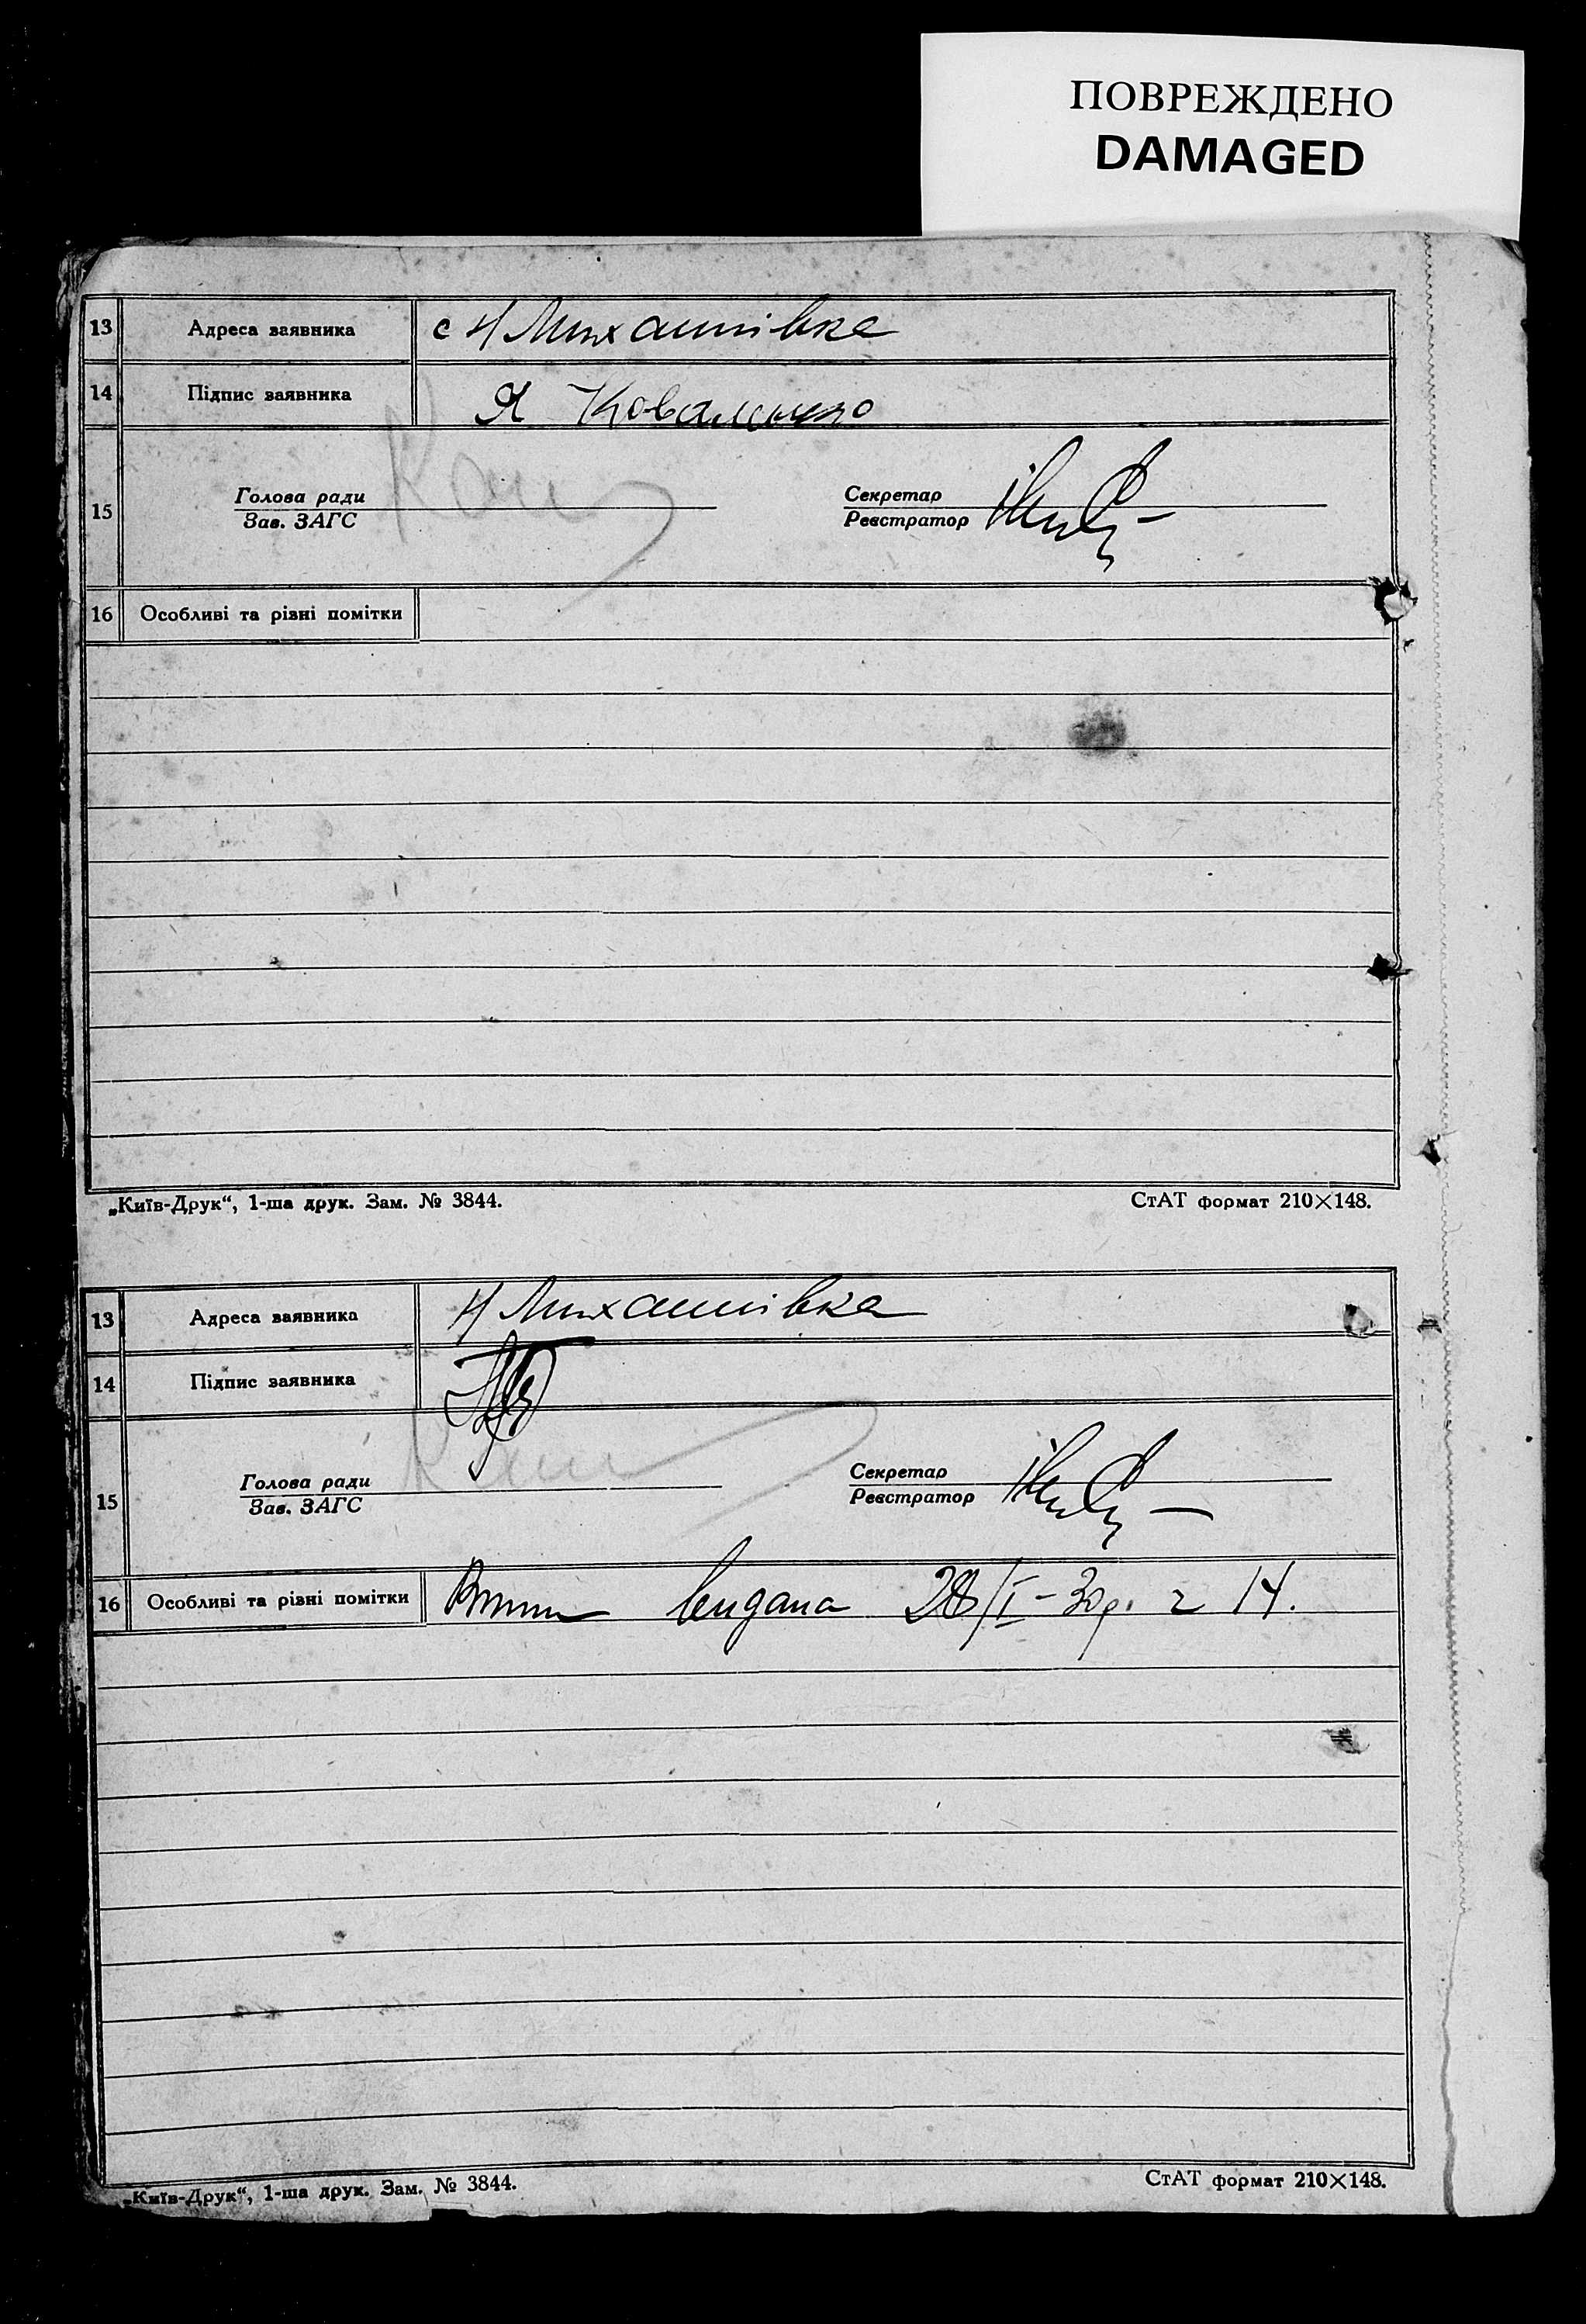 ПОВРЕЖДЕНО
DAMAGED
13 Адреса заявника с Н Михайлівка
14 Підпис заявника Я Коваленко
Голова ради Секретар
15
Зав. ЗАГС Реєстратор
16 Особливі та різні помітки
„Київ-Друк“, 1-ша друк. Зам. № 3844. СтАТ формат 210×148.
13 Адреса заявника Н Михайлівка
14 Підпис заявника
Голова ради Секретар
15
Зав. ЗАГС Реєстратор
16 Особливі та різні помітки видана 28/I-30р. 14.
„Київ-Друк“, 1-ша друк. Зам. № 3844. СтАТ формат 210×148.